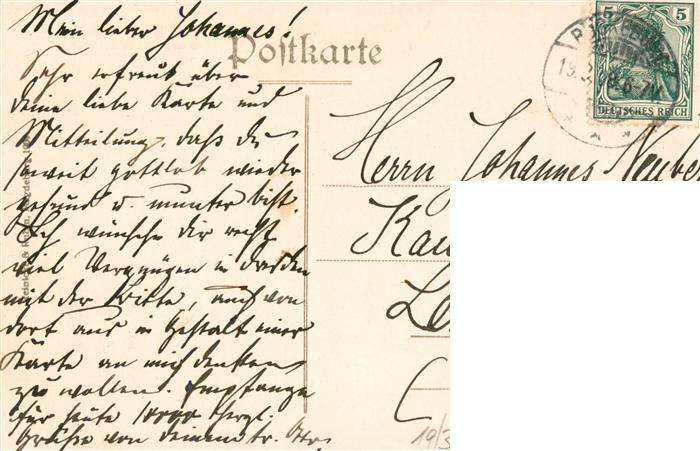 Mein lieber Johannes!
Postkarte
Sehr erfreut über
deine liebe Karte und
Mitteilung, daß du
soweit gottlob wieder
gesund u. munter bist.
Ich wünsche dir recht
viel Vergnügen in Dresden
mit der Bitte, auch von
dort aus in Gestalt einer
Karte an mich denken
zu wollen. Empfange
für heute 10000 herzl.
Grüße von deinem tr.
5 5
DEUTSCHES REICH
Herrn Johannes
19/3